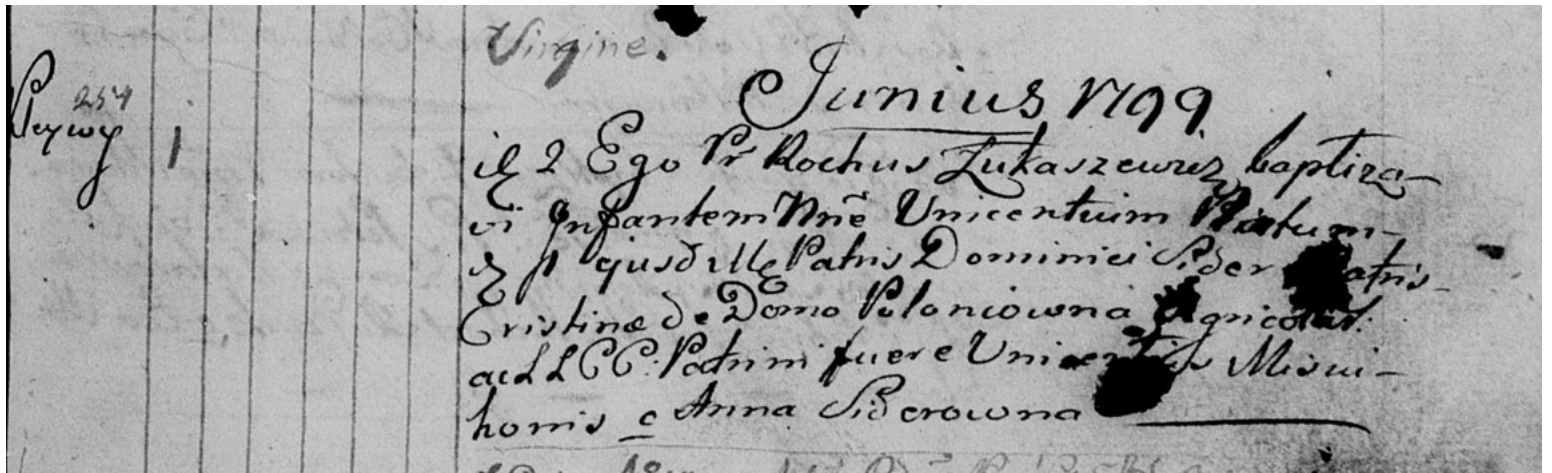 Virgine.
Junius 1799
254
Peywy 1
ię 2 Ego Pr Rochus Łukaszewicz baptiza-
vi Infantem Nnē Unicentium Natum-
ę 1 ejusd Mę Patris Dominici Sider atris-
Cristinæ de Domo Poloniowna Agricolar:
ac LLCC: Patrini fuere Unicentius Miswi-
homis c Anna Siderowna